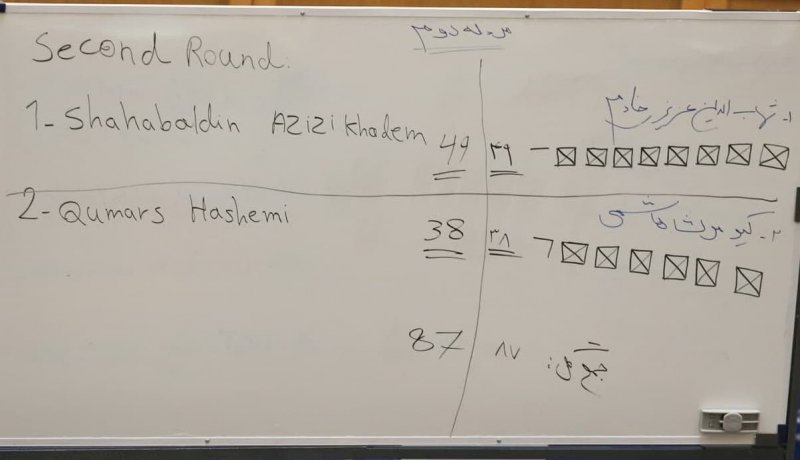 مرحله دوم
Second Round:
1- Shahabaldin Azizi Khadem 49
۴۹ ۱- شهاب الدین عزیزی خادم
2- Qumars Hashemi 38
۳۸ ۲- کیومرث هاشمی
87
جمع کل: ۸۷